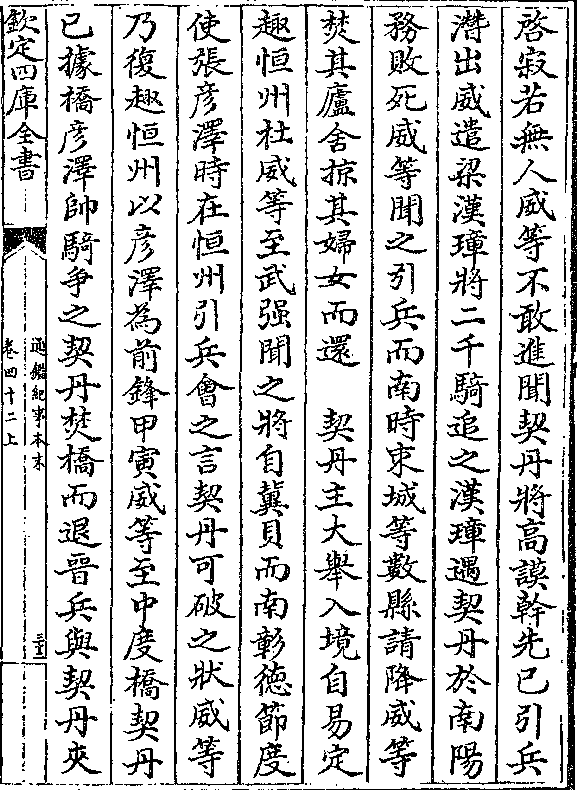 啓寂若無人威等不敢進聞契丹將高謨幹先已引兵
潛出威遣梁漢璋將二千騎追之漢璋遇契丹於南陽
務敗死威等聞之引兵而南時束城等數縣請降威等
焚其廬舍掠其婦女而還　契丹主大舉入境自易定
趣恒州杜威等至武强聞之將自冀貝而南彰德節度
使張彦澤時在恒州引兵會之言契丹可破之狀威等
乃復趣恒州以彦澤為前鋒甲寅威等至中度橋契丹
已據橋彦澤帥騎争之契丹焚橋而退晉兵與契丹夾
欽定四庫全書
通鑑紀事本末
卷四十二上